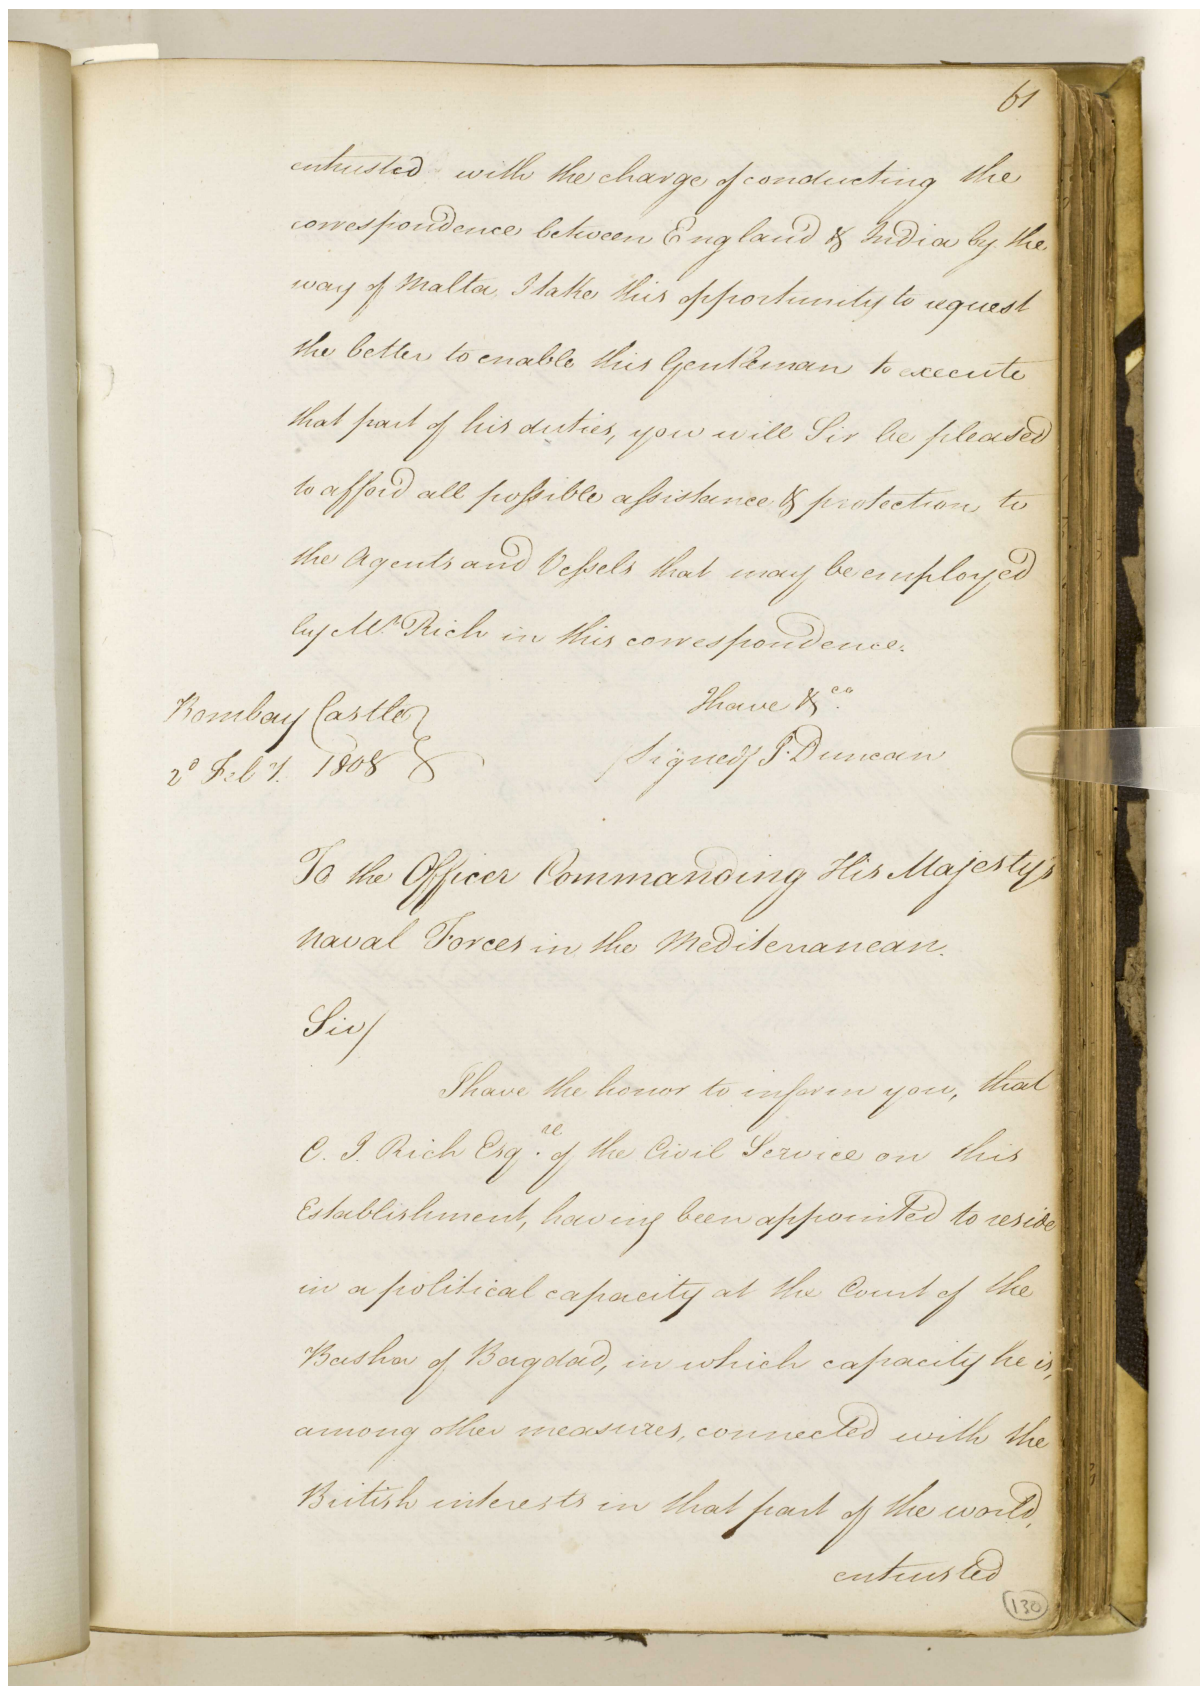 61
entrusted with the charge of conducting the
correspondence between England & India by the
way of Malta, I take this opportunity to request
the better to enable this Gentleman to execute
that part of his duties, you will Sir be pleased
to afford all possible assistance & protection to
the Agents and Vessels that may be employed
by Mr. Rich in this correspondence.
I have &ca.
Bombay Castle
Signed/ J. Duncan
2d Feby. 1808
To the Officer Commanding His Majesty's
Naval Forces in the Mediterranean.
Sir/
I have the honor to inform you, that
C. J. Rich Esqre. of the Civil Service on this
Establishment, having been appointed to reside
in a political capacity at the Court of the
Basha of Bagdad, in which capacity he is,
among other measures, connected with the
British interests in that part of the world,
entrusted
130